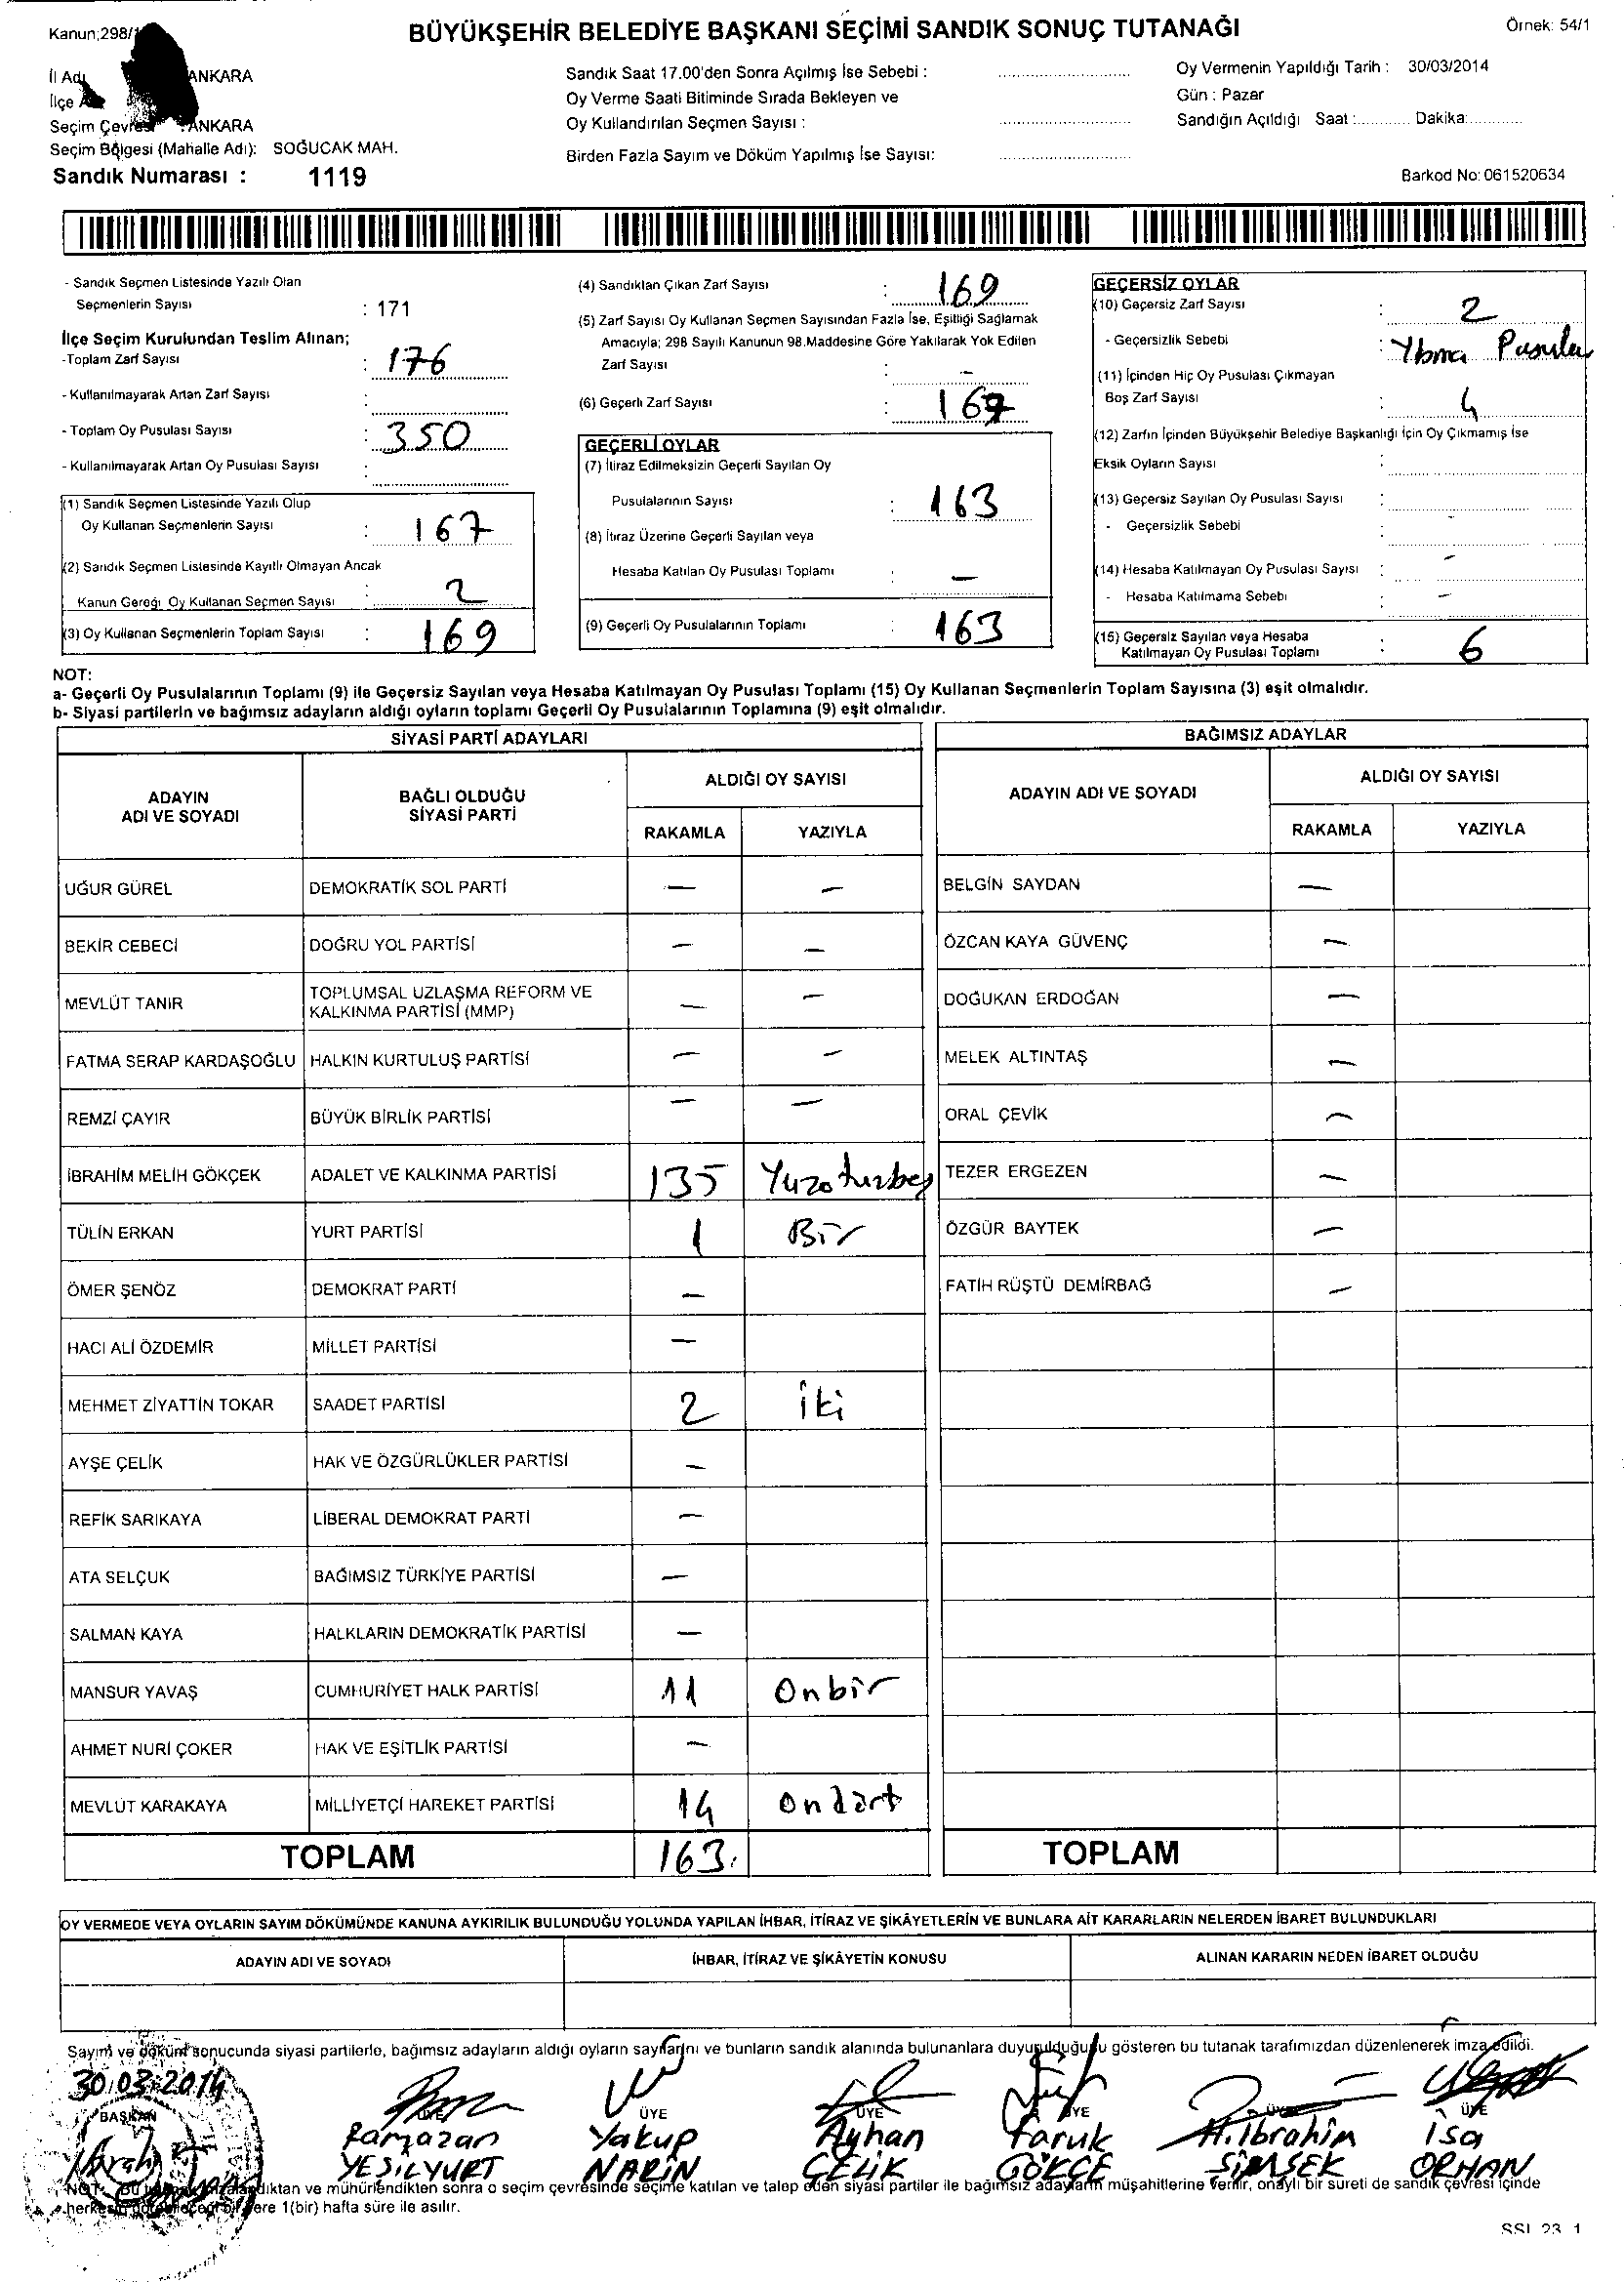 Kanun;298/
BÜYÜKŞEHİR BELEDİYE BAŞKANI SEÇİMİ SANDIK SONUÇ TUTANAĞI
Örnek: 54/1
İl Adı ANKARA
İlçe
Seçim Çevresi : ANKARA
Seçim Bölgesi (Mahalle Adı): SOĞUCAK MAH.
Sandık Numarası : 1119
Sandık Saat 17.00'den Sonra Açılmış İse Sebebi :
Oy Verme Saati Bitiminde Sırada Bekleyen ve
Oy Kullandırılan Seçmen Sayısı :
Birden Fazla Sayım ve Döküm Yapılmış İse Sayısı:
Oy Vermenin Yapıldığı Tarih : 30/03/2014
Gün : Pazar
Sandığın Açıldığı Saat :............ Dakika:............
Barkod No: 061520634
- Sandık Seçmen Listesinde Yazılı Olan
Seçmenlerin Sayısı : 171
İlçe Seçim Kurulundan Teslim Alınan;
-Toplam Zarf Sayısı : 176
- Kullanılmayarak Artan Zarf Sayısı :
- Toplam Oy Pusulası Sayısı : 350
- Kullanılmayarak Artan Oy Pusulası Sayısı :
(1) Sandık Seçmen Listesinde Yazılı Olup
Oy Kullanan Seçmenlerin Sayısı : 167
(2) Sandık Seçmen Listesinde Kayıtlı Olmayan Ancak
Kanun Gereği Oy Kullanan Seçmen Sayısı : 2
(3) Oy Kullanan Seçmenlerin Toplam Sayısı : 169
(4) Sandıktan Çıkan Zarf Sayısı : 169
(5) Zarf Sayısı Oy Kullanan Seçmen Sayısından Fazla İse, Eşitliği Sağlamak
Amacıyla; 298 Sayılı Kanunun 98.Maddesine Göre Yakılarak Yok Edilen
Zarf Sayısı : -
(6) Geçerli Zarf Sayısı :
GEÇERLİ OYLAR
(7) İtiraz Edilmeksizin Geçerli Sayılan Oy
Pusulalarının Sayısı : 163
(8) İtiraz Üzerine Geçerli Sayılan veya
Hesaba Katılan Oy Pusulası Toplamı : -
(9) Geçerli Oy Pusulalarının Toplamı : 163
GEÇERSİZ OYLAR
(10) Geçersiz Zarf Sayısı : 2
- Geçersizlik Sebebi :
(11) İçinden Hiç Oy Pusulası Çıkmayan
Boş Zarf Sayısı : 4
(12) Zarfın İçinden Büyükşehir Belediye Başkanlığı İçin Oy Çıkmamış İse
Eksik Oyların Sayısı :
(13) Geçersiz Sayılan Oy Pusulası Sayısı :
- Geçersizlik Sebebi : -
(14) Hesaba Katılmayan Oy Pusulası Sayısı : -
- Hesaba Katılmama Sebebi : -
(15) Geçersiz Sayılan veya Hesaba
Katılmayan Oy Pusulası Toplamı : 6
NOT:
a- Geçerli Oy Pusulalarının Toplamı (9) ile Geçersiz Sayılan veya Hesaba Katılmayan Oy Pusulası Toplamı (15) Oy Kullanan Seçmenlerin Toplam Sayısına (3) eşit olmalıdır.
b- Siyasi partilerin ve bağımsız adayların aldığı oyların toplamı Geçerli Oy Pusulalarının Toplamına (9) eşit olmalıdır.
SİYASİ PARTİ ADAYLARI
ADAYIN ADI VE SOYADI
BAĞLI OLDUĞU SİYASİ PARTİ
ALDIĞI OY SAYISI
RAKAMLA YAZIYLA
UĞUR GÜREL DEMOKRATİK SOL PARTİ - -
BEKİR CEBECİ DOĞRU YOL PARTİSİ - -
MEVLÜT TANIR TOPLUMSAL UZLAŞMA REFORM VE KALKINMA PARTİSİ (MMP) - -
FATMA SERAP KARDAŞOĞLU HALKIN KURTULUŞ PARTİSİ - -
REMZİ ÇAYIR BÜYÜK BİRLİK PARTİSİ - -
İBRAHİM MELİH GÖKÇEK ADALET VE KALKINMA PARTİSİ 135 Yüzotuzbeş
TÜLİN ERKAN YURT PARTİSİ 1 Bir
ÖMER ŞENÖZ DEMOKRAT PARTİ -
HACI ALİ ÖZDEMİR MİLLET PARTİSİ -
MEHMET ZİYATTİN TOKAR SAADET PARTİSİ 2 iki
AYŞE ÇELİK HAK VE ÖZGÜRLÜKLER PARTİSİ -
REFİK SARIKAYA LİBERAL DEMOKRAT PARTİ -
ATA SELÇUK BAĞIMSIZ TÜRKİYE PARTİSİ -
SALMAN KAYA HALKLARIN DEMOKRATİK PARTİSİ -
MANSUR YAVAŞ CUMHURİYET HALK PARTİSİ 11 Onbir
AHMET NURİ ÇOKER HAK VE EŞİTLİK PARTİSİ -
MEVLÜT KARAKAYA MİLLİYETÇİ HAREKET PARTİSİ 14 Ondört
TOPLAM 163
BAĞIMSIZ ADAYLAR
ADAYIN ADI VE SOYADI
ALDIĞI OY SAYISI
RAKAMLA YAZIYLA
BELGİN SAYDAN -
ÖZCAN KAYA GÜVENÇ -
DOĞUKAN ERDOĞAN -
MELEK ALTINTAŞ -
ORAL ÇEVİK -
TEZER ERGEZEN -
ÖZGÜR BAYTEK -
FATİH RÜŞTÜ DEMİRBAĞ -
TOPLAM
OY VERMEDE VEYA OYLARIN SAYIM DÖKÜMÜNDE KANUNA AYKIRILIK BULUNDUĞU YOLUNDA YAPILAN İHBAR, İTİRAZ VE ŞİKÂYETLERİN VE BUNLARA AİT KARARLARIN NELERDEN İBARET BULUNDUKLARI
ADAYIN ADI VE SOYADI
İHBAR, İTİRAZ VE ŞİKÂYETİN KONUSU
ALINAN KARARIN NEDEN İBARET OLDUĞU
Sayım ve döküm sonucunda siyasi partilerle, bağımsız adayların aldığı oyların sayılarını ve bunların sandık alanında bulunanlara duyurulduğunu gösteren bu tutanak tarafımızdan düzenlenerek imza edildi.
30.03.2014
BAŞKAN ÜYE ÜYE ÜYE ÜYE ÜYE ÜYE
Ramazan Yakup Ayhan Faruk H.İbrahim İsa
YEŞİLYURT NARİN ÇELİK GÖKÇE ŞİMŞEK ORHAN
NOT: Bu tutanak imzalandıktan ve mühürlendikten sonra o seçim çevresinde seçime katılan ve talep eden siyasi partiler ile bağımsız adayların müşahitlerine verilir, onaylı bir sureti de sandık çevresi içinde
herkesin görebileceği bir yere 1(bir) hafta süre ile asılır.